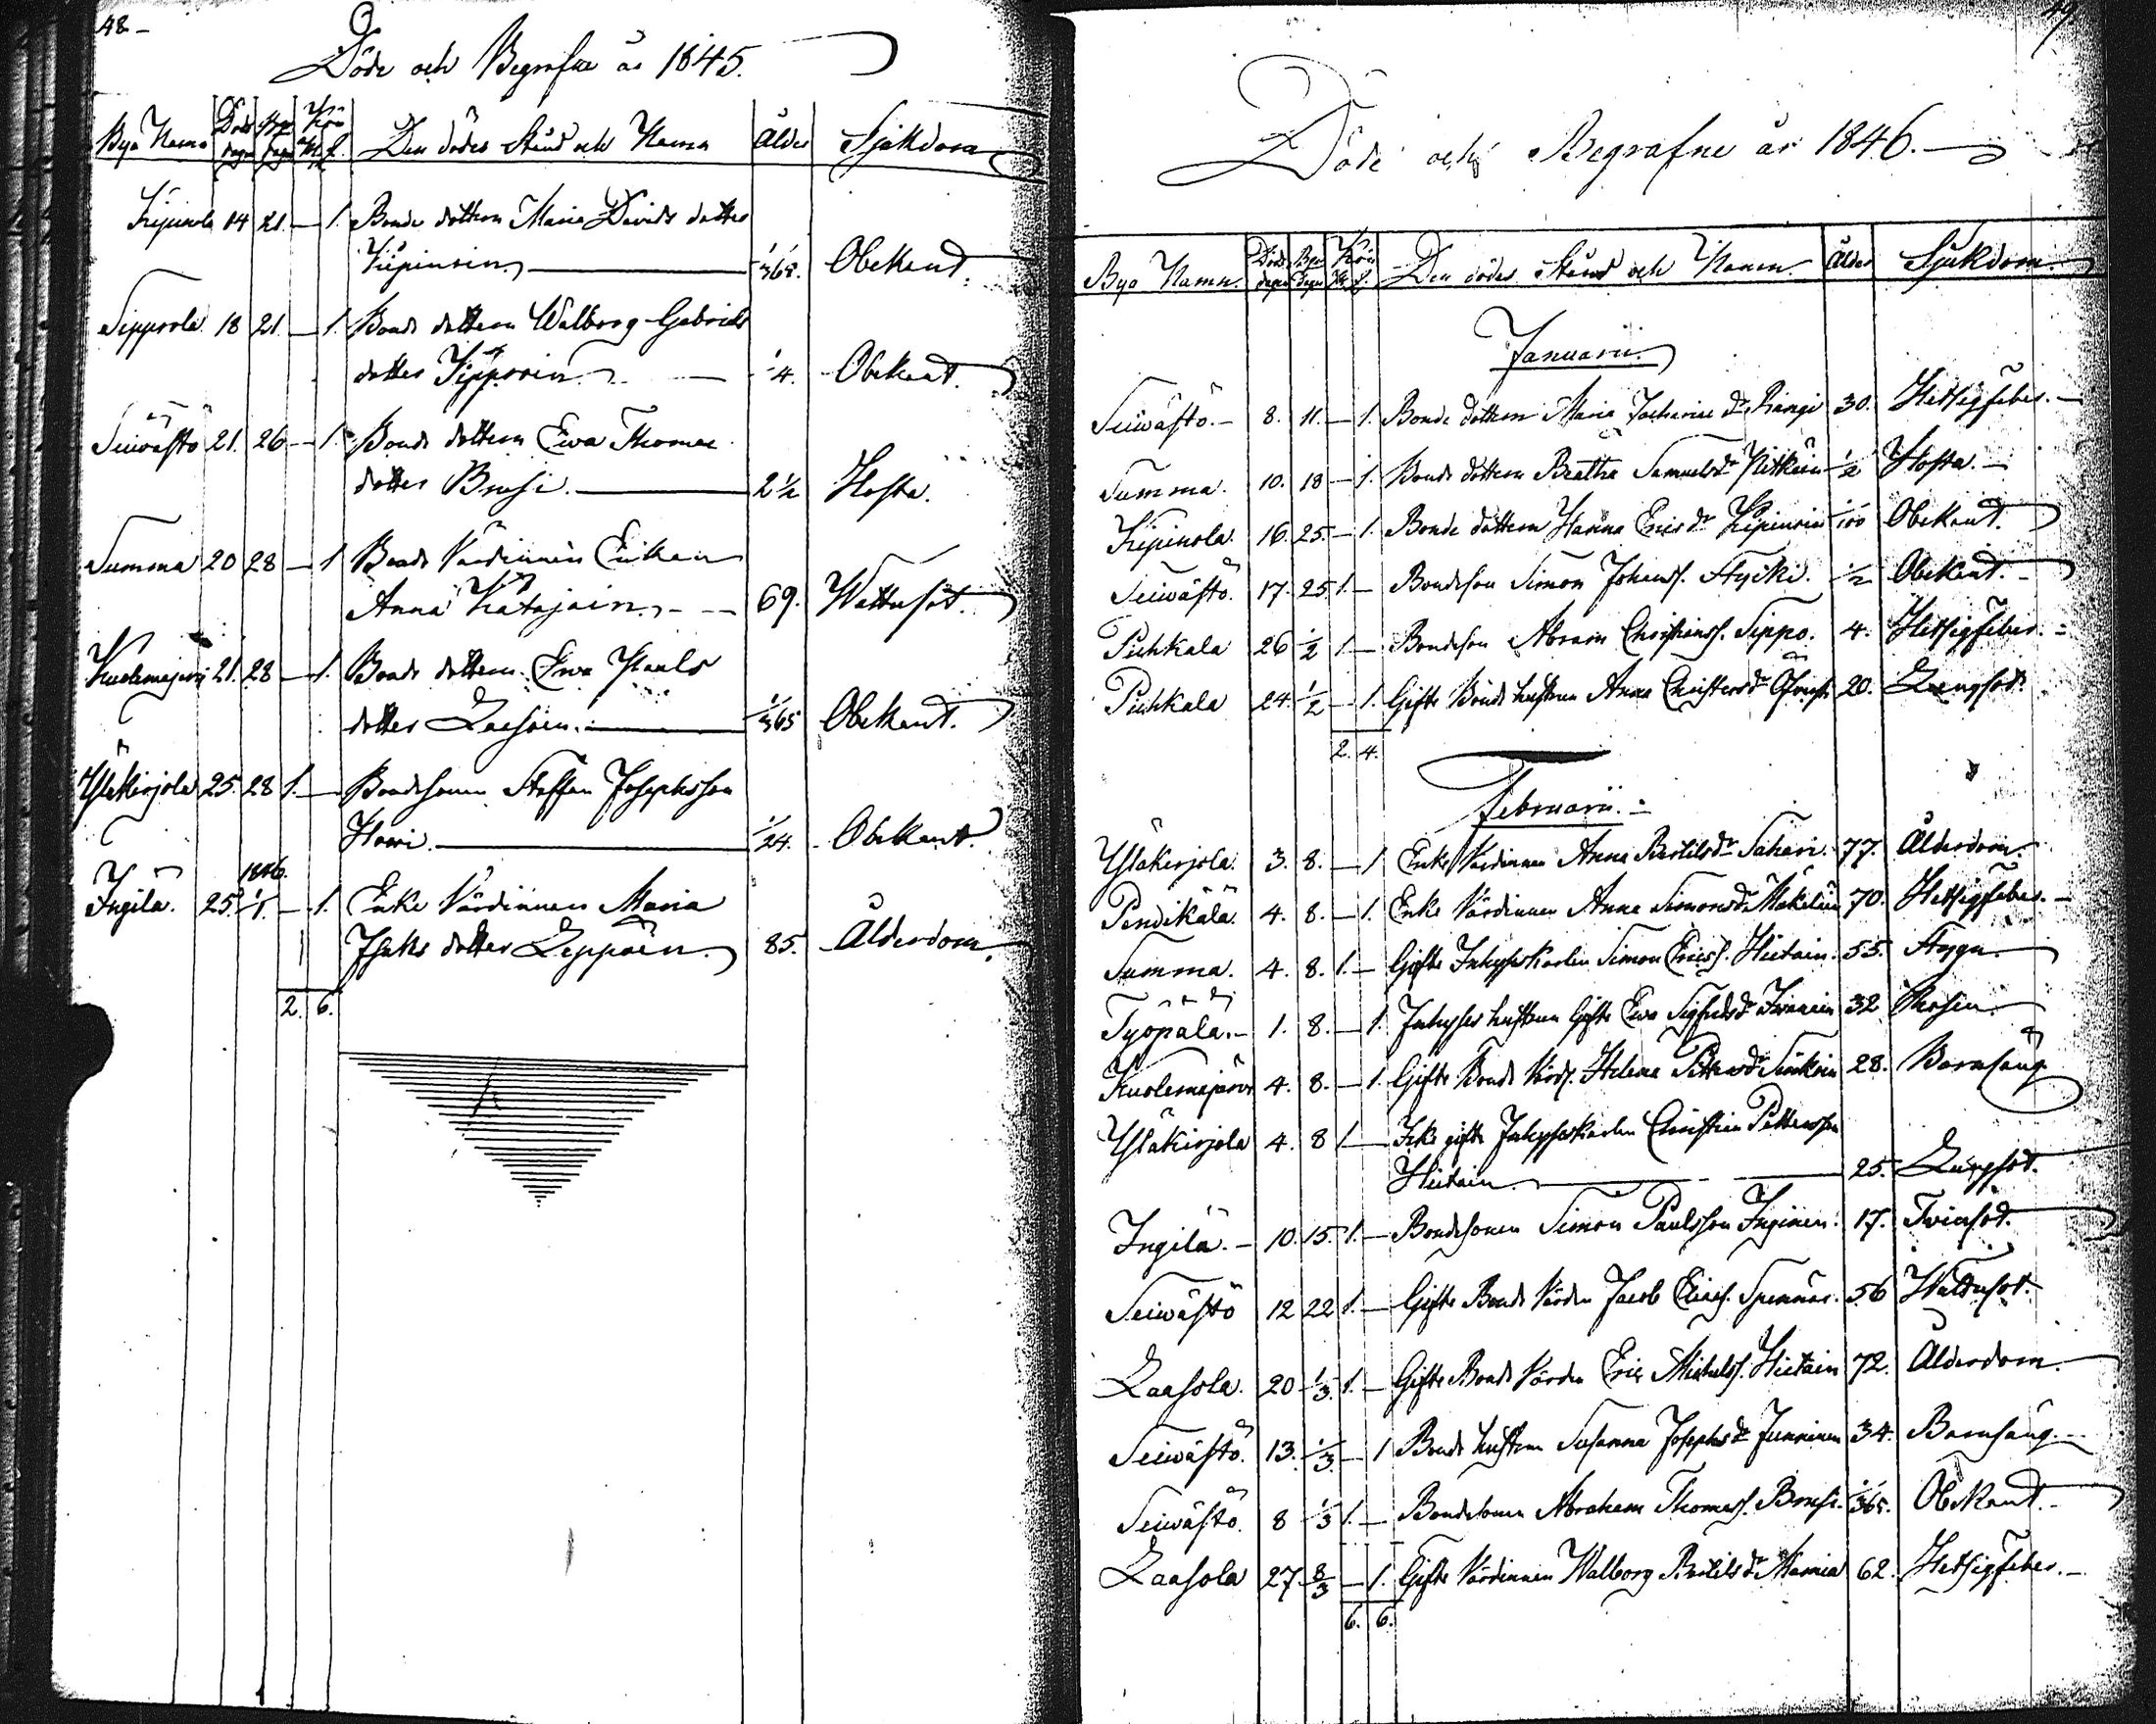 48 -
Döde och Begrafne år 1845.
Bya Namn Döds dagen Begr dagen Kön M. f. Den dödes Stånd och Namn Ålder Sjukdom
Kipinola 14 21. — 1. Bonde dottern Maria Davids dotter
Kipinoin 1/365. Obekand.
Sipprola 18 21. — 1. Bonde dottern Walborg Gabriels
dotter Sipproin 1/4. Obekant.
Seiwästö 21. 26 — 1. Bonde dottern Ewa Thomae
dotter Brusi. 2 1/2 Hosta.
Summa 20 28 — 1 Bonde Värdinnan Enkan
Anna Katajain. 69. Wattusot.
Kuolemajärvi 21. 28 — 1. Bonde dottern Ewa Pauls
dotter Laasoin. 1/365 Obekant.
Yläkirjola 25. 28 1. — Bondesonen Staffan Josephsson
Howi. 1/24. Obekant.
1846.
Ingilä. 25. 1/1. — 1. Enke Värdinnan Maria
Isaks dotter Leppäin. 85. Ålderdom.
2. 6.
49
Döde och Begrafne år 1846.
Bya Namn. Döds dagen Begr dagen Kön M. f. Den dödes Stånd och Namn. Ålder Sjukdom.
Januarii.
Seiwästö. 8. 11. — 1. Bonde dottern Maria Zachariae dr Kangi 30. Hetsigfeber.
Summa. 10. 18 — 1. Bonde dottern Beatha Samuels dr Pitkäin 1/2 Hosta.
Kipinola. 16. 25. — 1. Bonde dottern Hanna Erics dr Kipinoin Obekant.
Seiwästö. 17. 25 1. — Bondeson Simon Johans. Stycki. 1/2 Obekant.
Pihkala 26 1/2 1. — Bondeson Abram Christians. Sippo. 4. Hetsigfeber.
Pihkala 24. 1/2 — 1. Gifte Bonde hustrun Anna Christers dr 20. Lungsot.
2. 4.
Februarii.
Yläkirjola. 3. 8. — 1 Enke Värdinnan Anna Bertils dr Sahari. 77. Ålderdom.
Pendikälä. 4. 8. — 1. Enke Värdinnan Anna Simons dr Mäkeläin 70. Hetsigfeber.
Summa. 4. 8. 1. — Gifte Inhyseskarlen Simon Erics. Hietain. 55. Stygn.
Työpälä. 1. 8. — 1. Inhyses hustrun Gifte Ewa Sigfrids dr 32 Rosen.
Kuolemajärvi 4. 8. — 1. Gifte Bonde Värd. Helena Petters dr Sinkoin 28. Barnsäng
Yläkirjola 4. 8 1. — Icke gifte Inhyseskarlen Christian Pettersson
Hietain. 25. Lungsot.
Ingilä. 10. 15. 1. — Bondesonen Simon Paulsson Inginen. 17. Twinsot.
Seiwästö 12 22 1. — Gifte Bonde Värden Jacob Elias. Spennar. 56 Wattusot.
Laasola. 20 1/3. 1. — Gifte Bonde Värden Eric Michels. Hietain 72. Ålderdom.
Seiwästö. 13. 1/3. — 1 Bonde hustrun Susanna Josephs dr Junninen 34. Barnsäng.
Seiwästö. 8 1/3 1. — Bondesonen Abraham Thomas. Brusi. 1/365. Obekant.
Laasola 27 8/3 — 1. Gifte Värdinnan Walborg Bertils dr Mamia 62. Hetsigfeber.
6. 6.